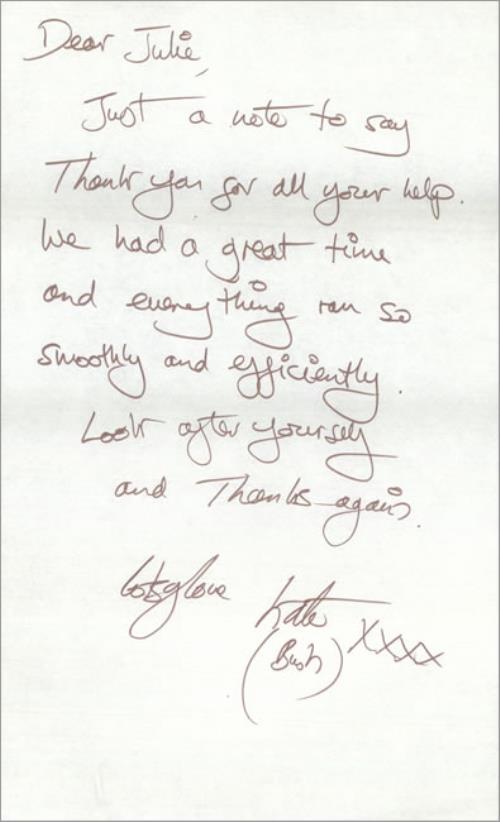 Dear Julie,
Just a note to say
Thank you for all your help.
We had a great time
and everything ran so
smoothly and efficiently.
Look after yourself
and Thanks again.
Lots of love Kate
(Bush) xxxx